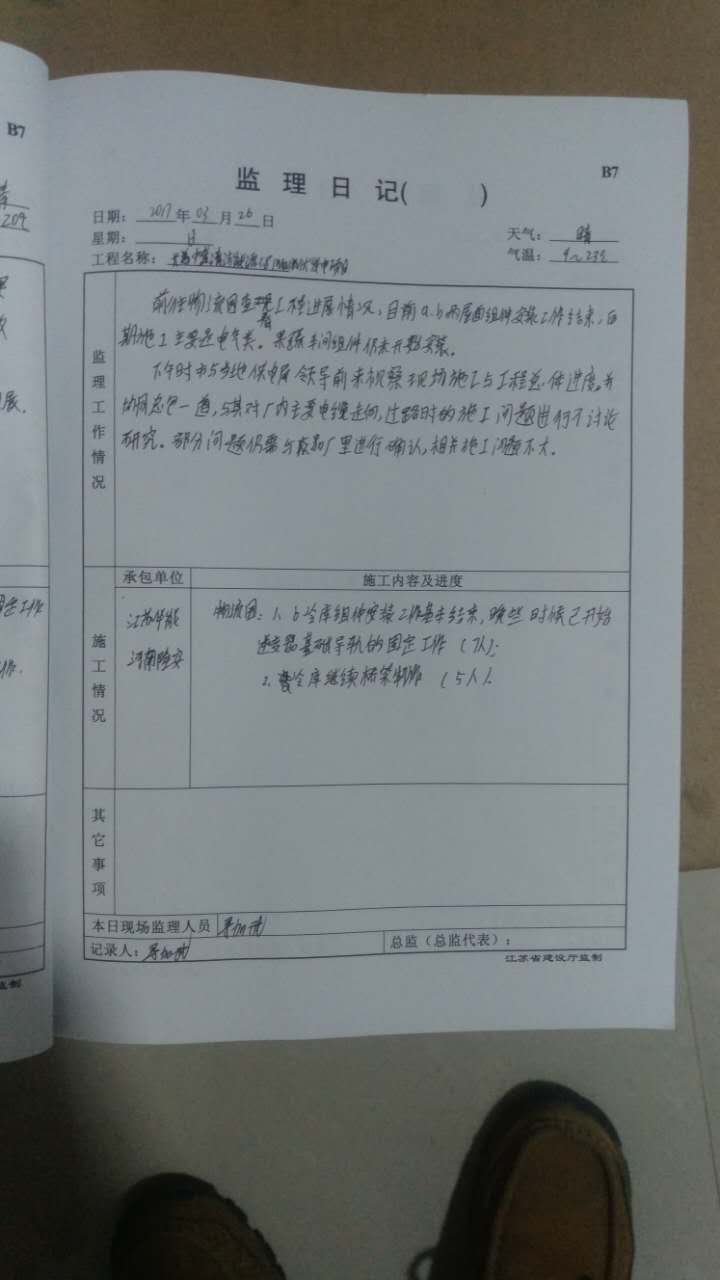 B7
B7
监 理 日 记( )
日期: 2017 年 03 月 26 日
星期: 日
天气: 晴
气温: 9~23℃
工程名称:
监理工作情况
前往物流园查看现场工程进展情况,目前a、b两层面组件安装工作结束,后
期施工主要是电气类。果蔬车间组件仍未开始安装。
下午时书与当地供电局领导前来视察现场施工与工程总体进度,并
协同总包一道,与其对厂内主要电缆走向,过路时的施工问题进行了讨论
研究。部分问题仍需与厂里进行确认,相关施工问题不大。
承包单位 施工内容及进度
施工情况
江苏华能
河南
物流园:1、b冷库组件安装工作基本结束,晚些时候已开始
逆变器基础导轨的固定工作(7人);
2、冷库继续桥架制作(5人)。
其它事项
本日现场监理人员
记录人:
总监(总监代表):
江苏省建设厅监制